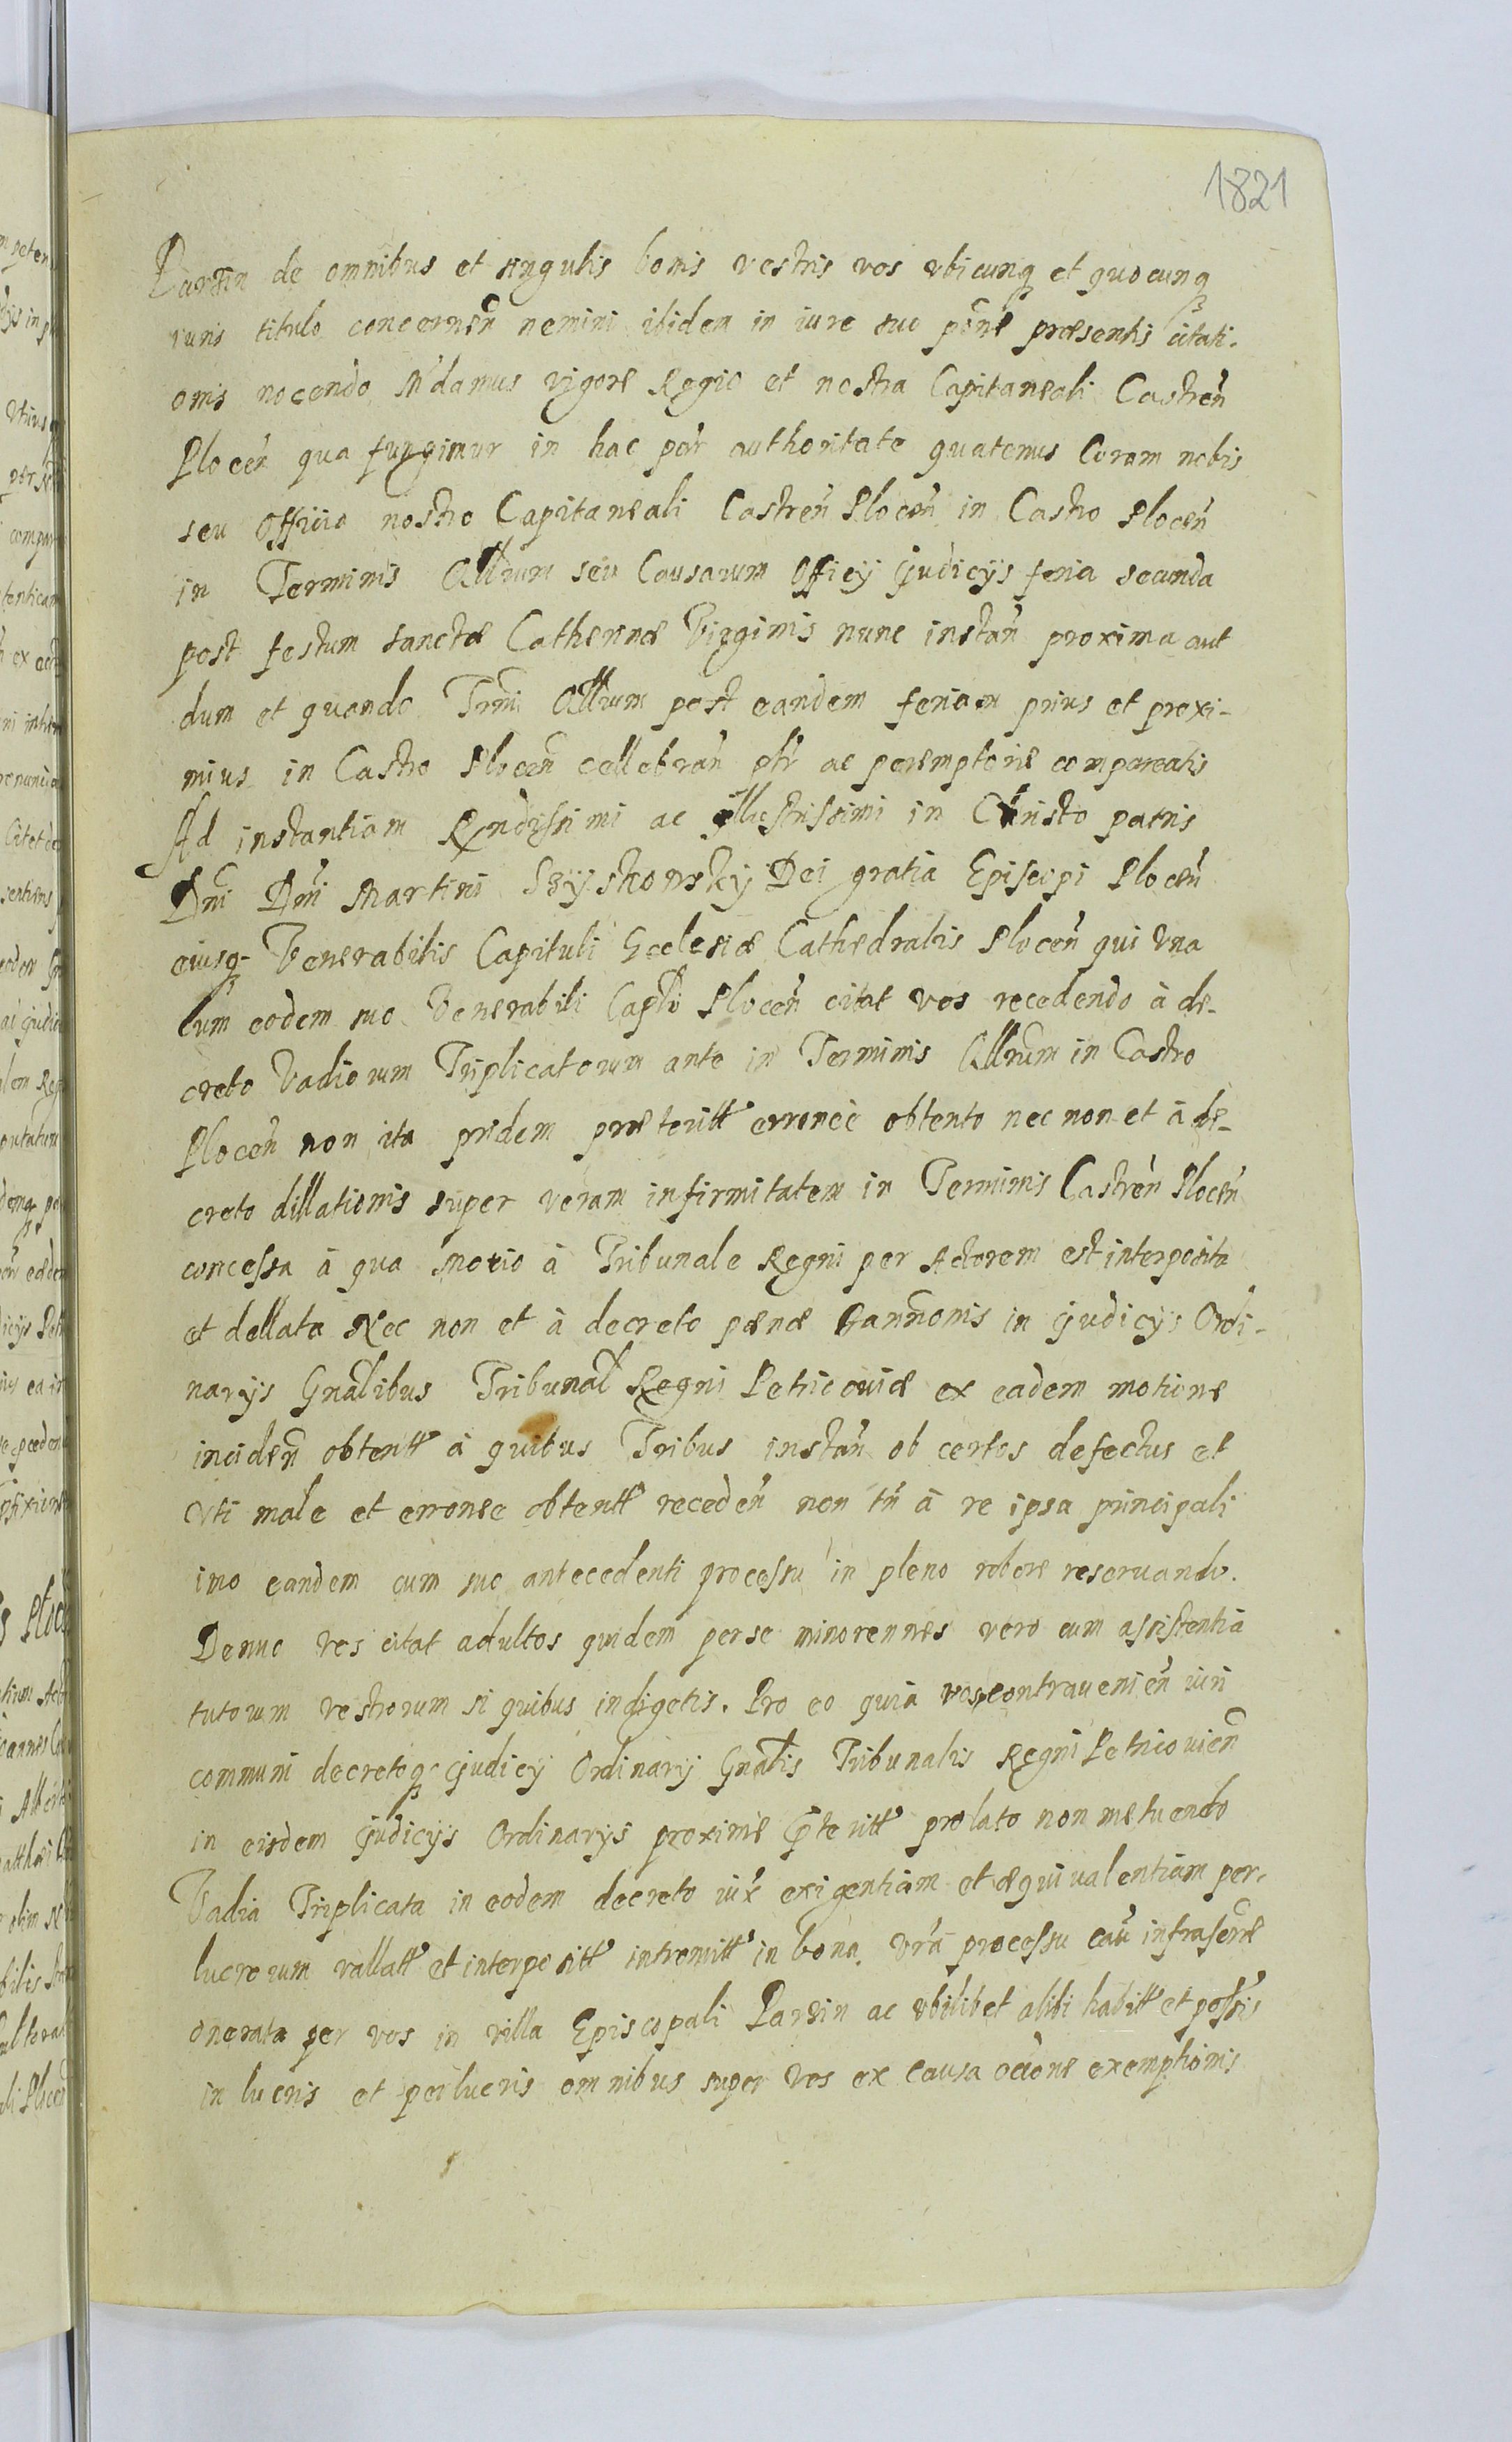 1821
Parzin de omnibus et singulis bonis vestris vos vbicunq et quocunq
iuris titulo concerneñ nemini ibidem in iure suo põne præsentis citati.
onis nocendo M'damus vigore Regio et nostra Capitaneali Castreñ
Ploceñ qua fungimur in hac par̃ authoritate quatenus Coram nobis
seu Officio nostro Capitaneali Castreñ Ploceñ in Castro Ploceñ
in Terminis Qllrum seu Causarum Officy Judicijs feria secunda
post festum sanctæ Catherinæ Virginis nunc instañ proxima aut
dum et quando Trmi Qllrum post eandem feriam prius et proxi-
mius in Castro Ploceñ cellebrañ ptr̃ ac peremptorie compareatis
Ad instantiam Rendissimi ac Illustrissimi in Christo patris
Dñi Dñi Martini Szyskowsky Dei gratia Episcopi Ploceñ
eiusq- Venerabilis Capituli Ecclesiæ Cathedralis Ploceñ qui Vna
Cum eodem suo Venerabili Caplo Ploceñ citat vos recedendo à de-
creto Vadiorum Triplicatorum ante in Terminis Qllrum in Castro
Ploceñ non ita pridem præteritt erroneè obtento nec non et à de-
creto dillationis super veram infirmitatem in Terminis Castreñ Ploceñ
concessa à qua motio à Tribunale Regni per Actorem est interposita
et dellata Nec non et à decreto pænæ Bannionis in Judicijs Ordi-
narijs Gnalibus Tribunal Regni Petricoviæ ex eadem motione
incideñ obtentt à quibus Tribus instañ ob certos defectus et
Vti male et erronee obtentt recedeñ non tñ à re ipsa principali
imo eandem cum suo antecedenti processu in pleno robore reseruando.
Denuo Vos citat adultos quidem perse minorennes vero cum assistentia
tutorum vestrorum si quibus indigetis. Pro eo quia vos contravenieñ iuri
communi decretoq Judicij Ordinarij Gnalis Tribunalis Regni Petricouieñ
in eisdem Judicijs Ordinarijs proxime pteritt prolato non metuendo
Vadia Triplicata in eodem decreto iux̃ exigentiam et æquiualentiam per-
lucrorum vallatt et interpositt intromitt in bona. Vrã processu cau infrascrae
onerata per vos in villa Episcopali Parzin ac vbilibet alibi habitt et possis
in lucris et perlucris omnibus super Vos ex causa ocione exemptionis